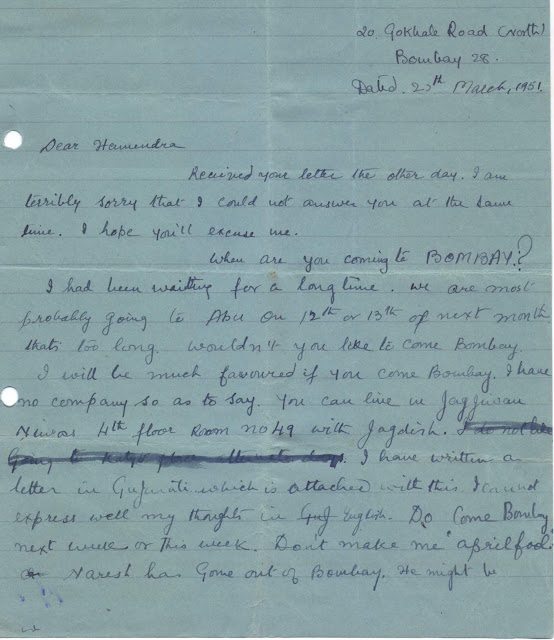 20. Gokhale Road (North)
Bombay 28.
Dated. 27th March, 1951.
Dear Hemendra
Received your letter the other day. I am
terribly sorry that I could not answer you at the same
time. I hope you'll excuse me.
When are you coming to BOMBAY?
I had been waiting for a long time. we are most
probably going to Abu on 12th or 13th of next month
thats too long. Wouldn't you like to come Bombay.
I will be much favoured if you come Bombay. I have
no company so as to say. You can live in Jagjiwan
Niwas 4th floor Room no 49 with Jagdish. I do not like
going to
I have written a
letter in Gujurati which is attached with this. I
express well my thoughts in Guj English. Do Come Bombay
next week or this week. Dont make me "april fool"
Naresh has Gone out of Bombay. He might be